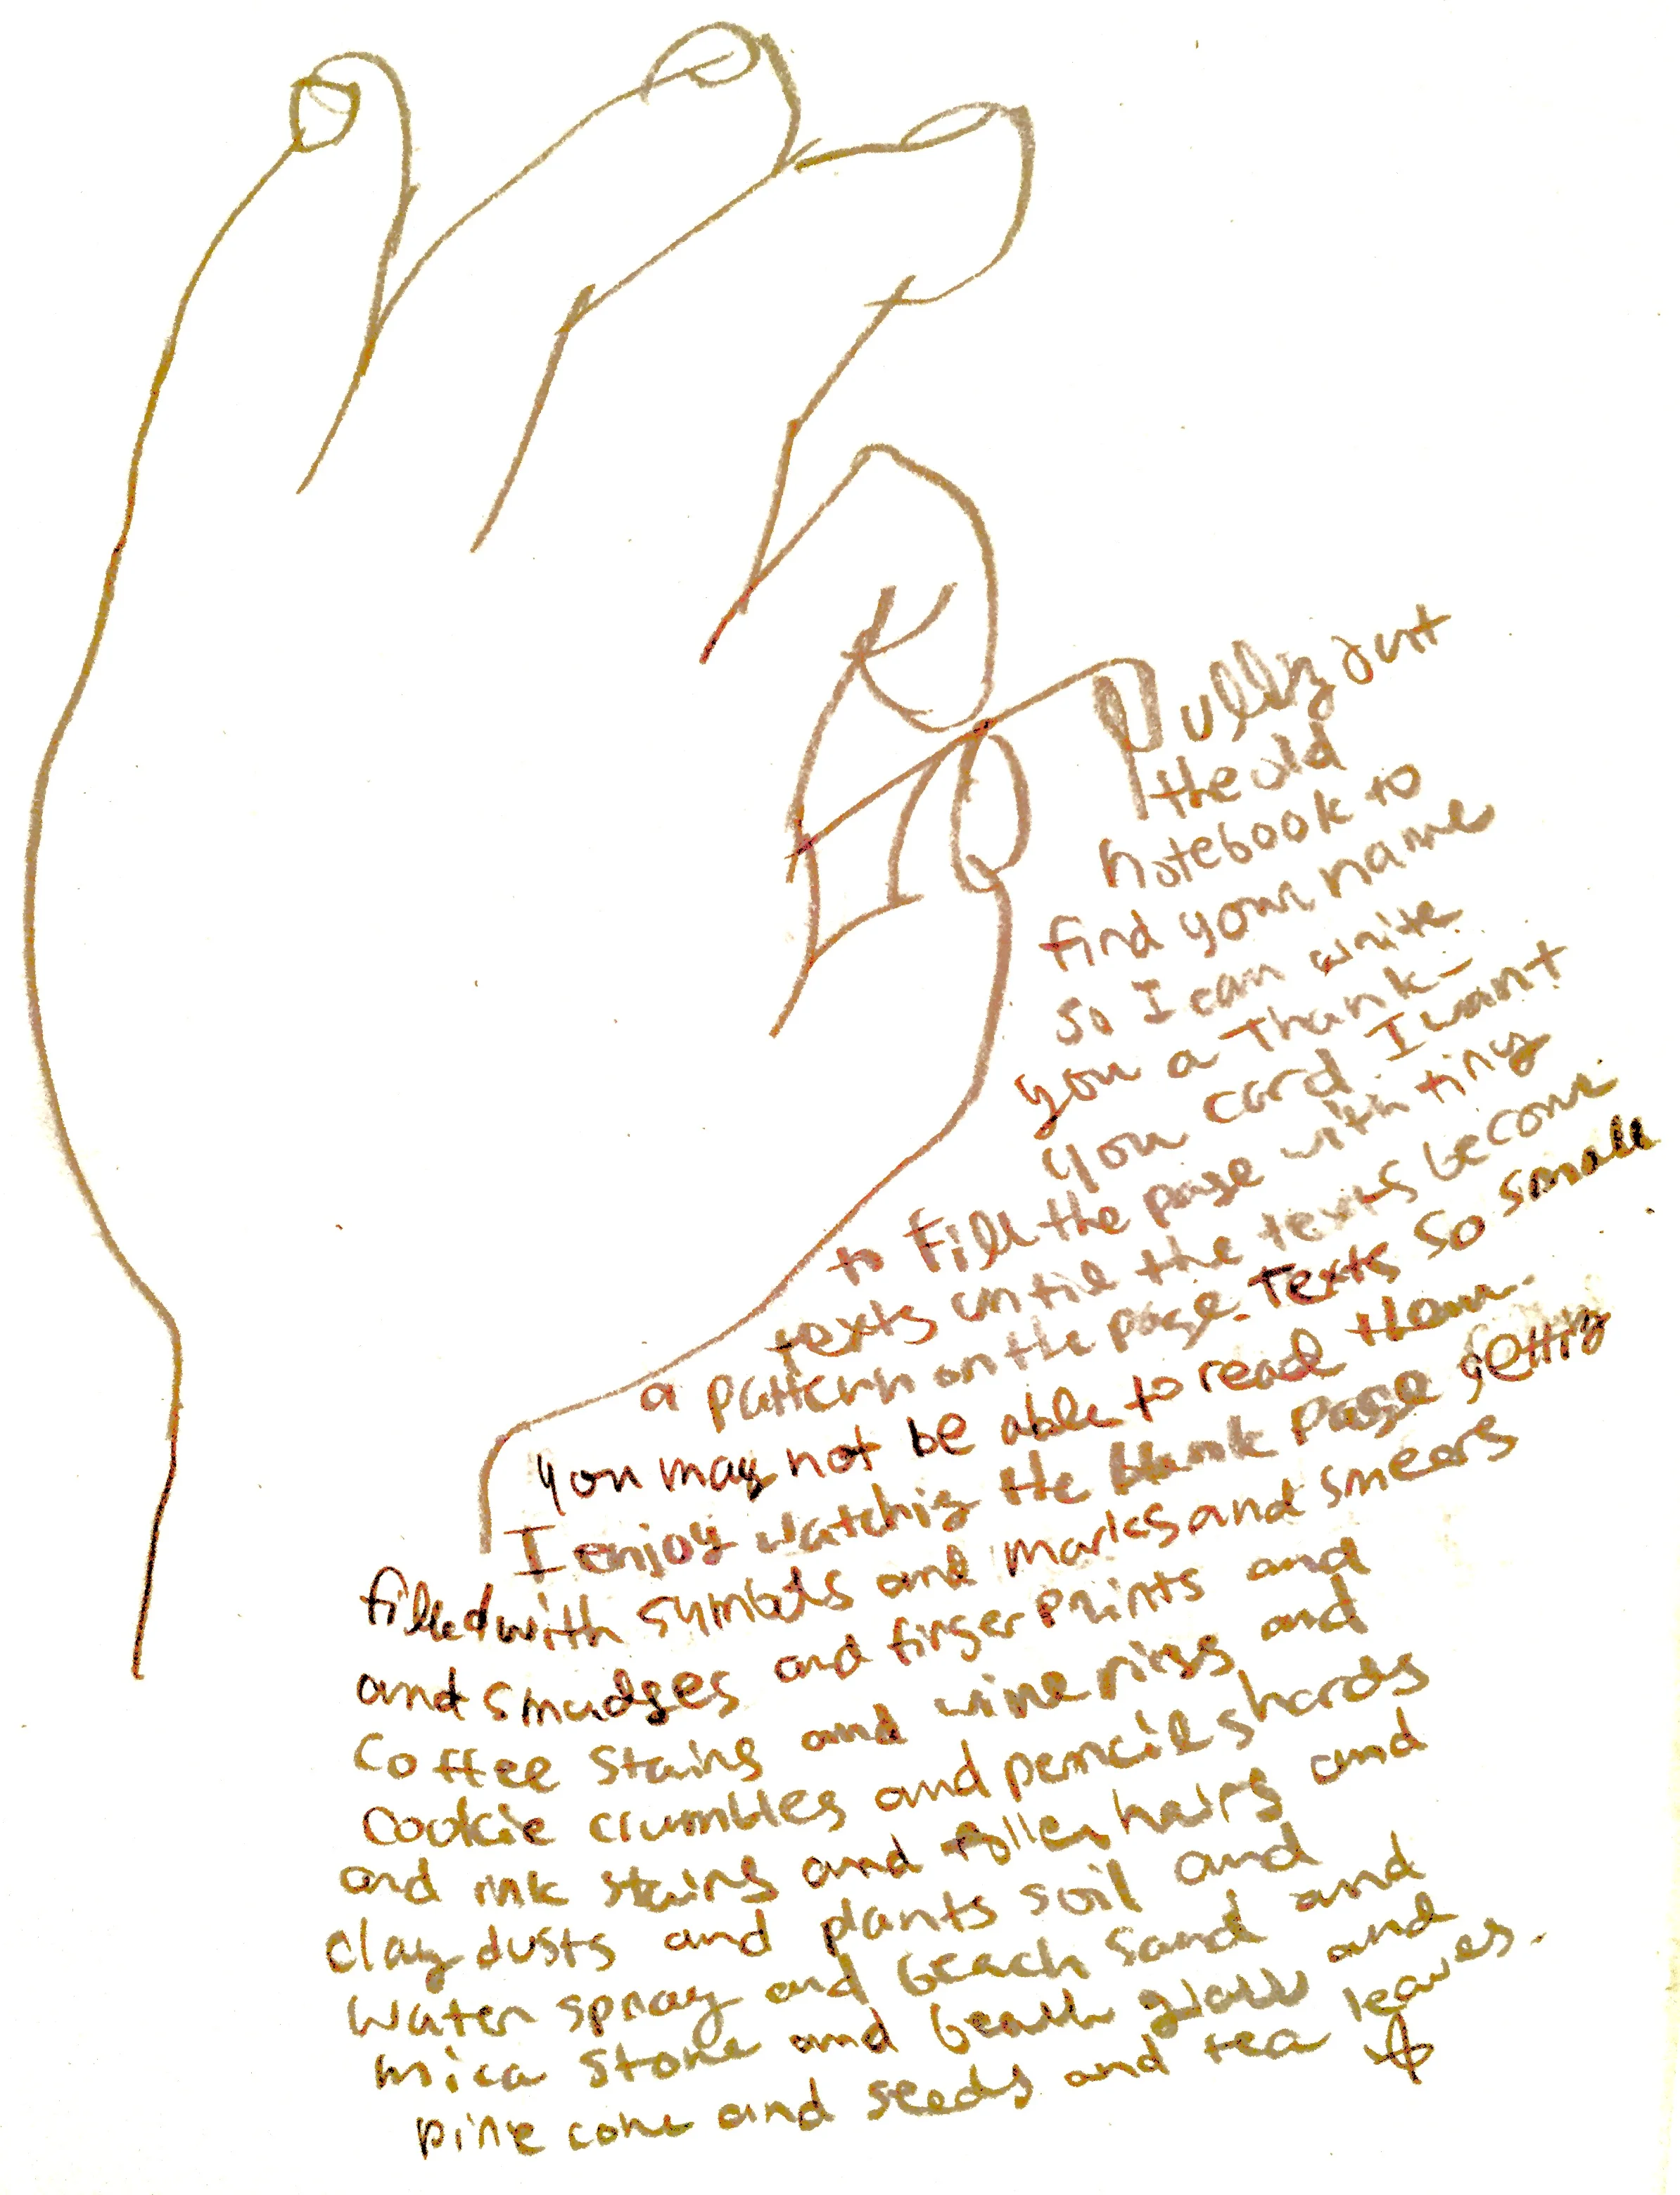 Pulling out
the old
notebook to
find your name
so I can write
you a Thank-
you card. I want
to Fill the page with tiny
texts until the texts become
a pattern on the page. Texts so small
you may not be able to read them.
I enjoy watching the blank page getting
filled with symbols and marks and smeers
and smudges and finger prints and
Coffee Stains and wine rings and
Cookie crumbles and pencil shards
and ink stains and fallen hairs and
clay dusts and plants soil and
Water spray and beach sand and
mica stone and beach glass and
pine cone and seeds and tea leaves.